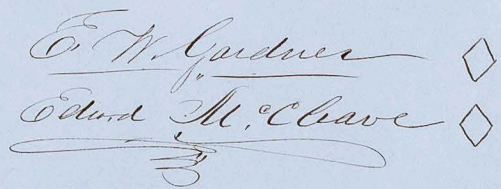 E. W. Gardner
Edward McCleave